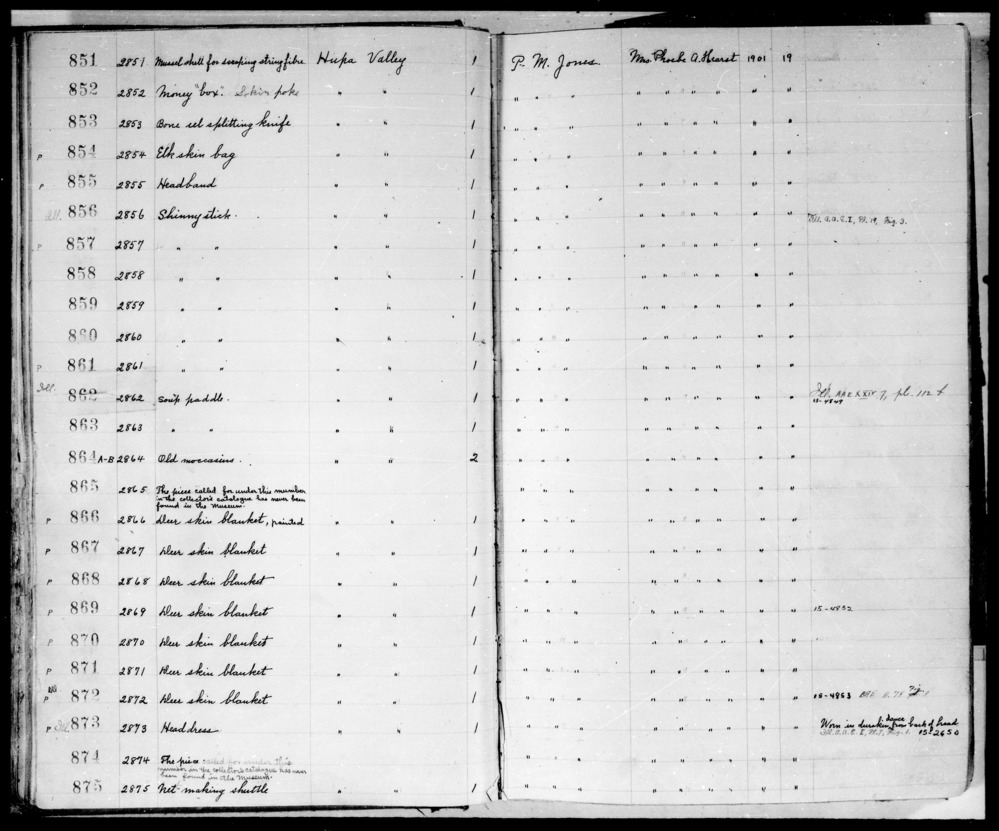 851 2851 Mussel shell for scraping string fibre Hupa Valley 1 P. M. Jones Mrs. Phoebe A. Hearst 1901 19
852 2852 Money "box". Skin poke " " 1 " " " " " " " " "
853 2853 Bone eel splitting knife " " 1 " " " " " " " " "
P 854 2854 Elk skin bag " " 1 " " " " " " " " "
P 855 2855 Headband " " 1 " " " " " " " " "
Ill. 856 2856 Shinny stick. " " 1 " " " " " " " " " Ill. A.A.E. I, Pl. 19, Fig. 3.
P 857 2857 " " " " 1 " " " " " " " " "
858 2858 " " " " 1 " " " " " " " " "
859 2859 " " " " 1 " " " " " " " " "
860 2860 " " " " 1 " " " " " " " " "
P 861 2861 " " " " 1 " " " " " " " " "
Ill. 862 2862 Soup paddle. " " 1 " " " " " " " " " Ill. AAE XXIV 7, pl. 112 f
15-4849
863 2863 " " " " 1 " " " " " " " " "
864 A-B 2864 Old moccasins. " " 2 " " " " " " " " "
865 2865 The piece called for under this number " " " " " " " " "
in the collector's catalogue has never been
found in the Museum.
P 866 2866 Deer skin blanket, painted " " 1 " " " " " " " " "
P 867 2867 Deer skin blanket " " 1 " " " " " " " " "
P 868 2868 Deer skin blanket " " 1 " " " " " " " " "
P 869 2869 Deer skin blanket " " 1 " " " " " " " " " 15-4852
P 870 2870 Deer skin blanket " " 1 " " " " " " " " "
P 871 2871 Deer skin blanket " " 1 " " " " " " " " "
P 872 2872 Deer skin blanket " " 1 " " " " " " " " " 15-4853 BAE B. 78
P Ill. 873 2873 Headdress " " 1 " " " " " " " " " Worn in deerskin dance, from back of head
Ill. A.A.E. I, Pl. , Fig. 1. 15-2650
874 2874 The piece called for under this " " " " " " " " "
number in the collector's catalogue has never
been found in the Museum.
875 2875 Net-making shuttle " " 1 " " " " " " " " "